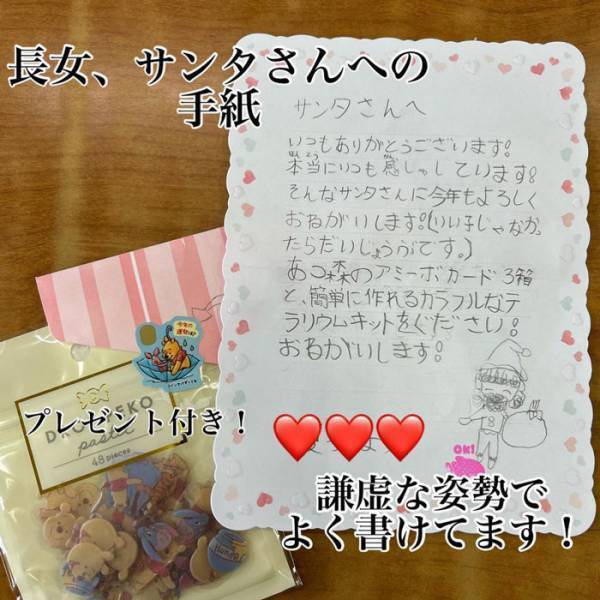 長女、サンタさんへの
手紙
サンタさんへ
いつもありがとうございます!
本当にいつも感しゃしています!
そんなサンタさんに今年もよろしく
おねがいします!(いい子じゃなかっ
たらだいじょうぶです。)
あつ森のアミーボカード3箱
と、簡単に作れるカラフルなテ
ラリウムキットをください!
おねがいします!
プレゼント付き!
48 pieces
OK!
謙虚な姿勢で
よく書けてます!